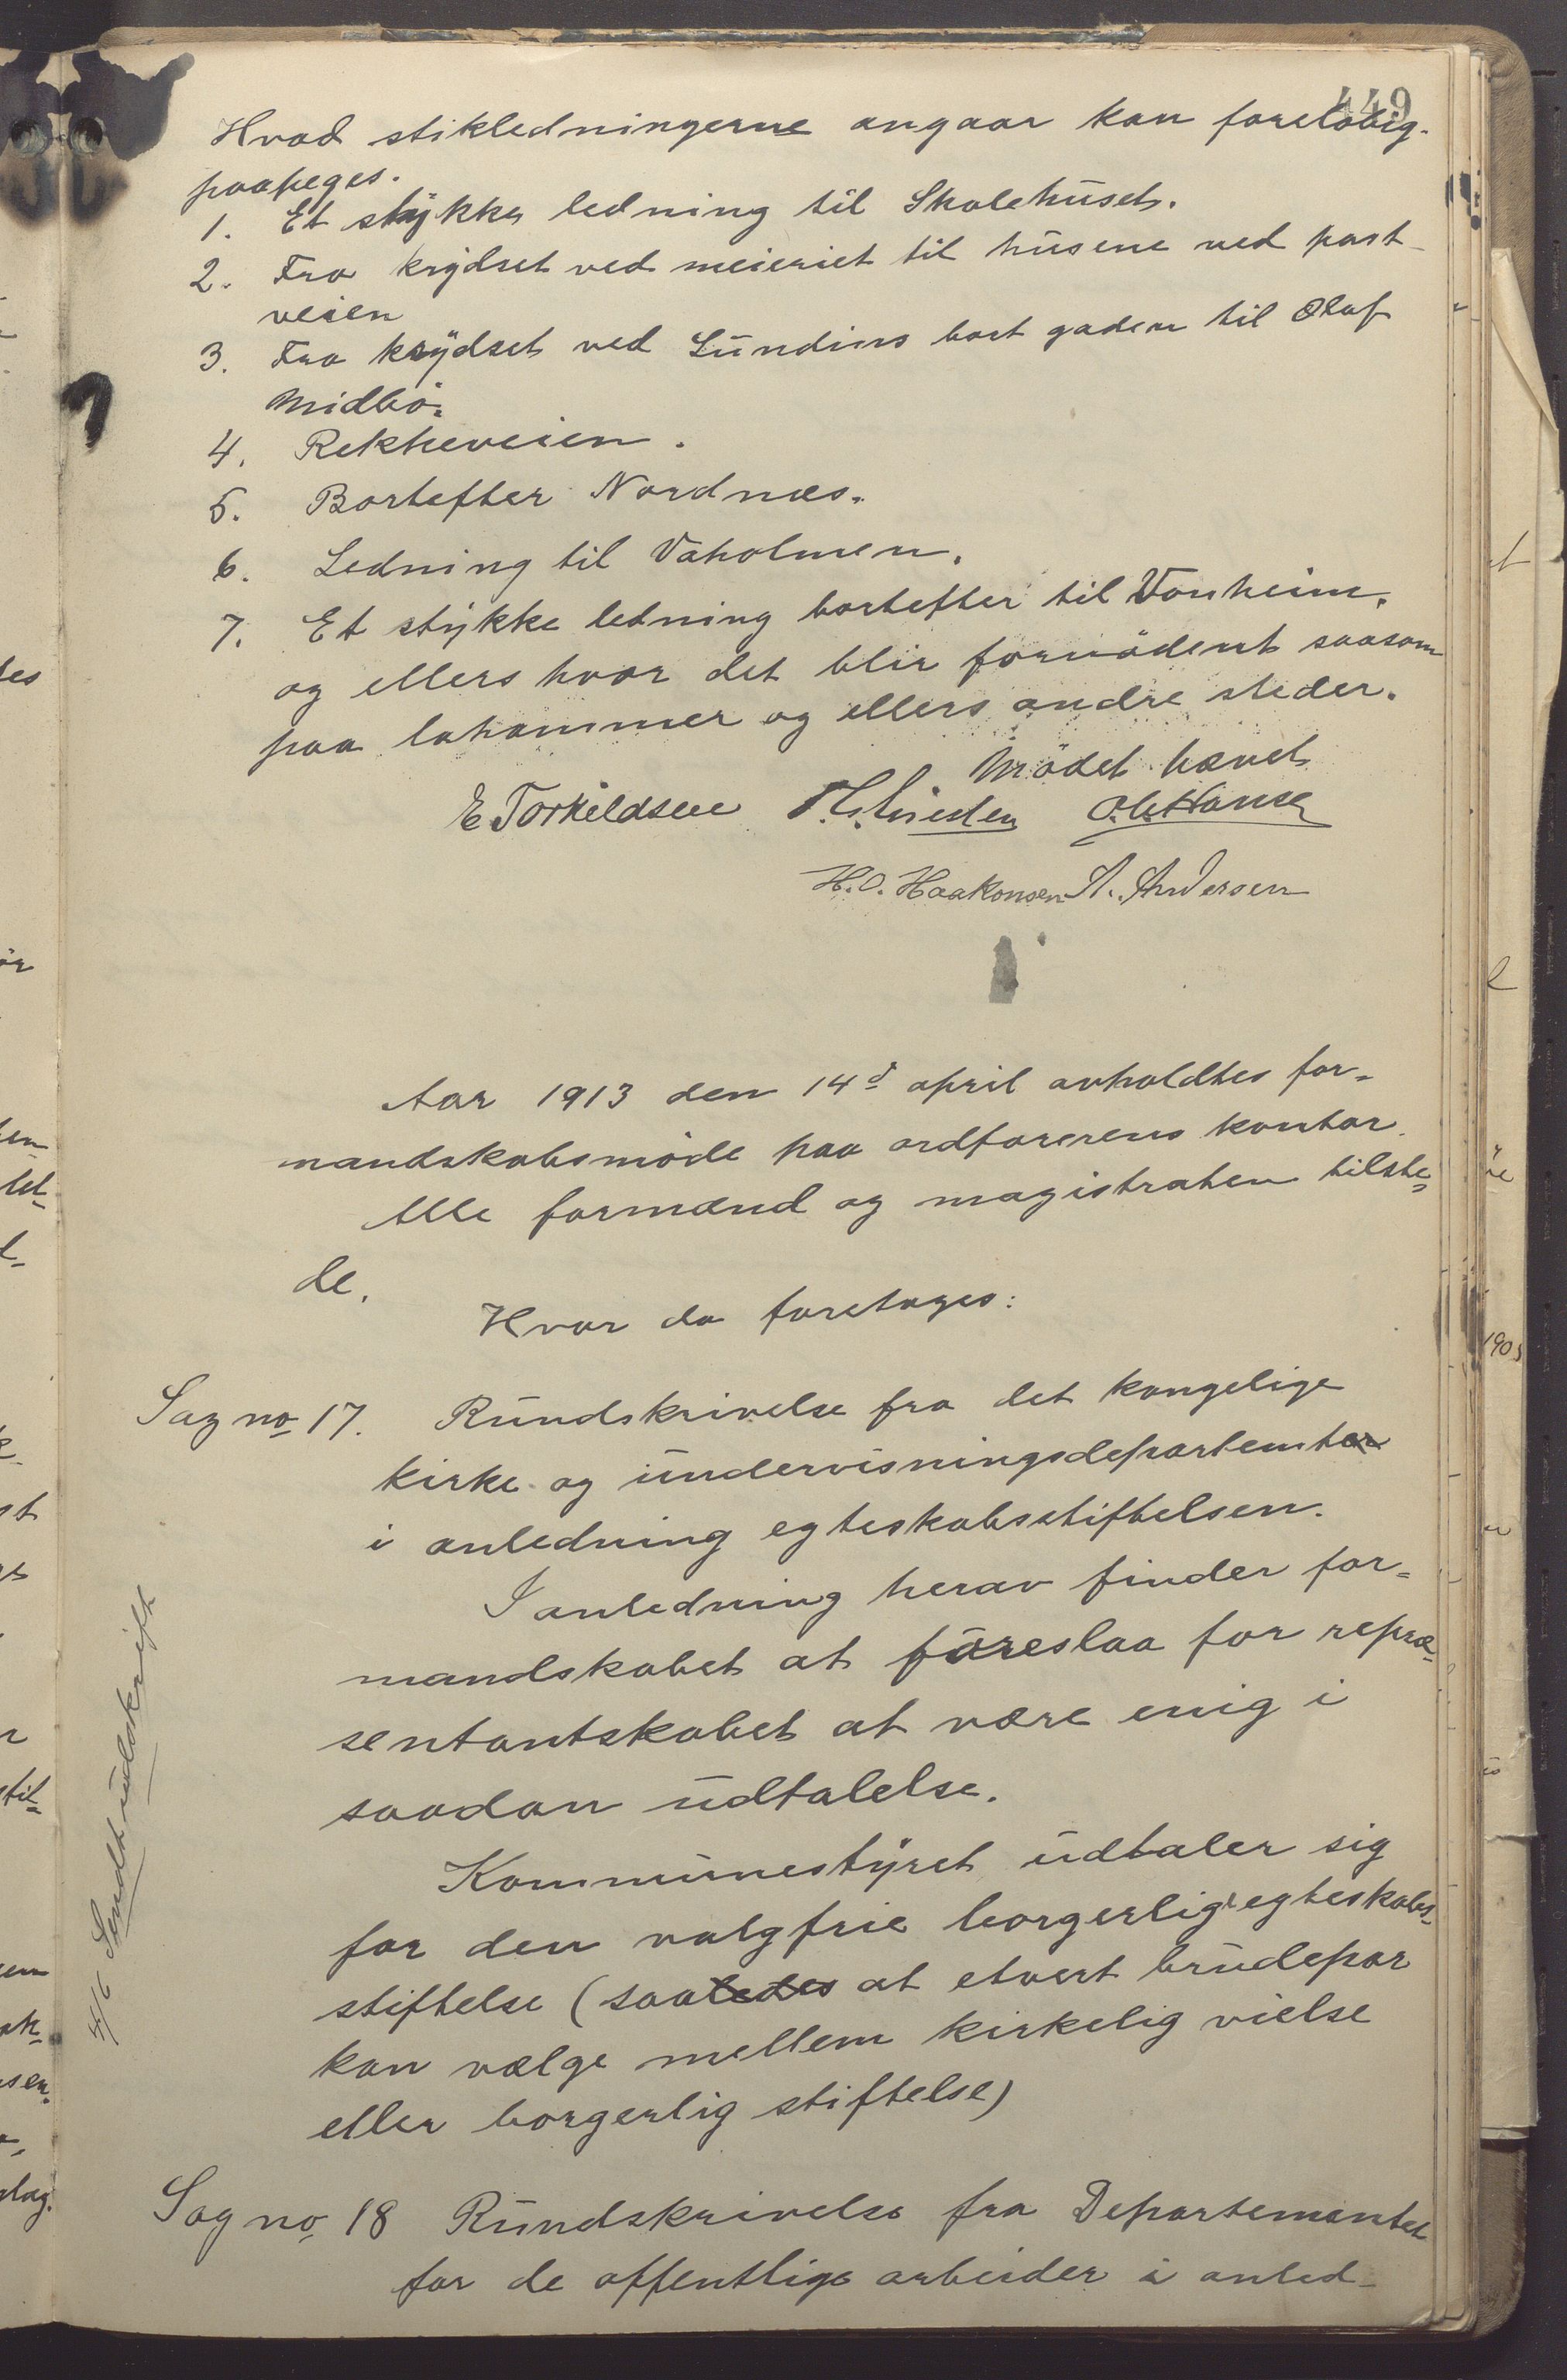 449
Hvad stikledningerne angaar kan foreløbig
paapeges.
1. Et stykke ledning til Skolehuset.
2. Fra krydset ved meieriet til husene ved post-
veien
3. Fra krydset ved Lundins bort gaden til Olaf
Midbø.
4. Rekkeveien.
5. Bortefter Nordnæs.
6. Ledning til Vaholmen.
7. Et stykke ledning bortefter til Vonheim.
og ellers hvor det blir fornødent saasom
paa lahammer og ellers andre steder.
Mødet hævet
E Torkildsen
H.O. Haakonsen A. Andersen
Aar 1913 den 14d april avholdtes for-
mandskabsmøde paa ordførerens kontor.
Alle formænd og magistraten tilste-
de.
Hvor da foretages:
Sag no 17. Rundskrivelse fra det kongelige
kirke og undervisningsdepartemten
i anledning egteskabsstiftelsen.
I anledning herav finder for-
mandskabet at foreslaa for repræ-
sentantskabet at være enig i
saadan udtalelse.
Kommunestyret udtaler sig
for den valgfrie borgerlige egteskabs-
stiftelse (saaledes at etvert brudepar
kan vælge mellem kirkelig vielse
eller borgerlig stiftelse)
4/6 Sendt udskrift
Sag no 18 Rundskrivelse fra Departementet
for de offentlige arbeider i anled-